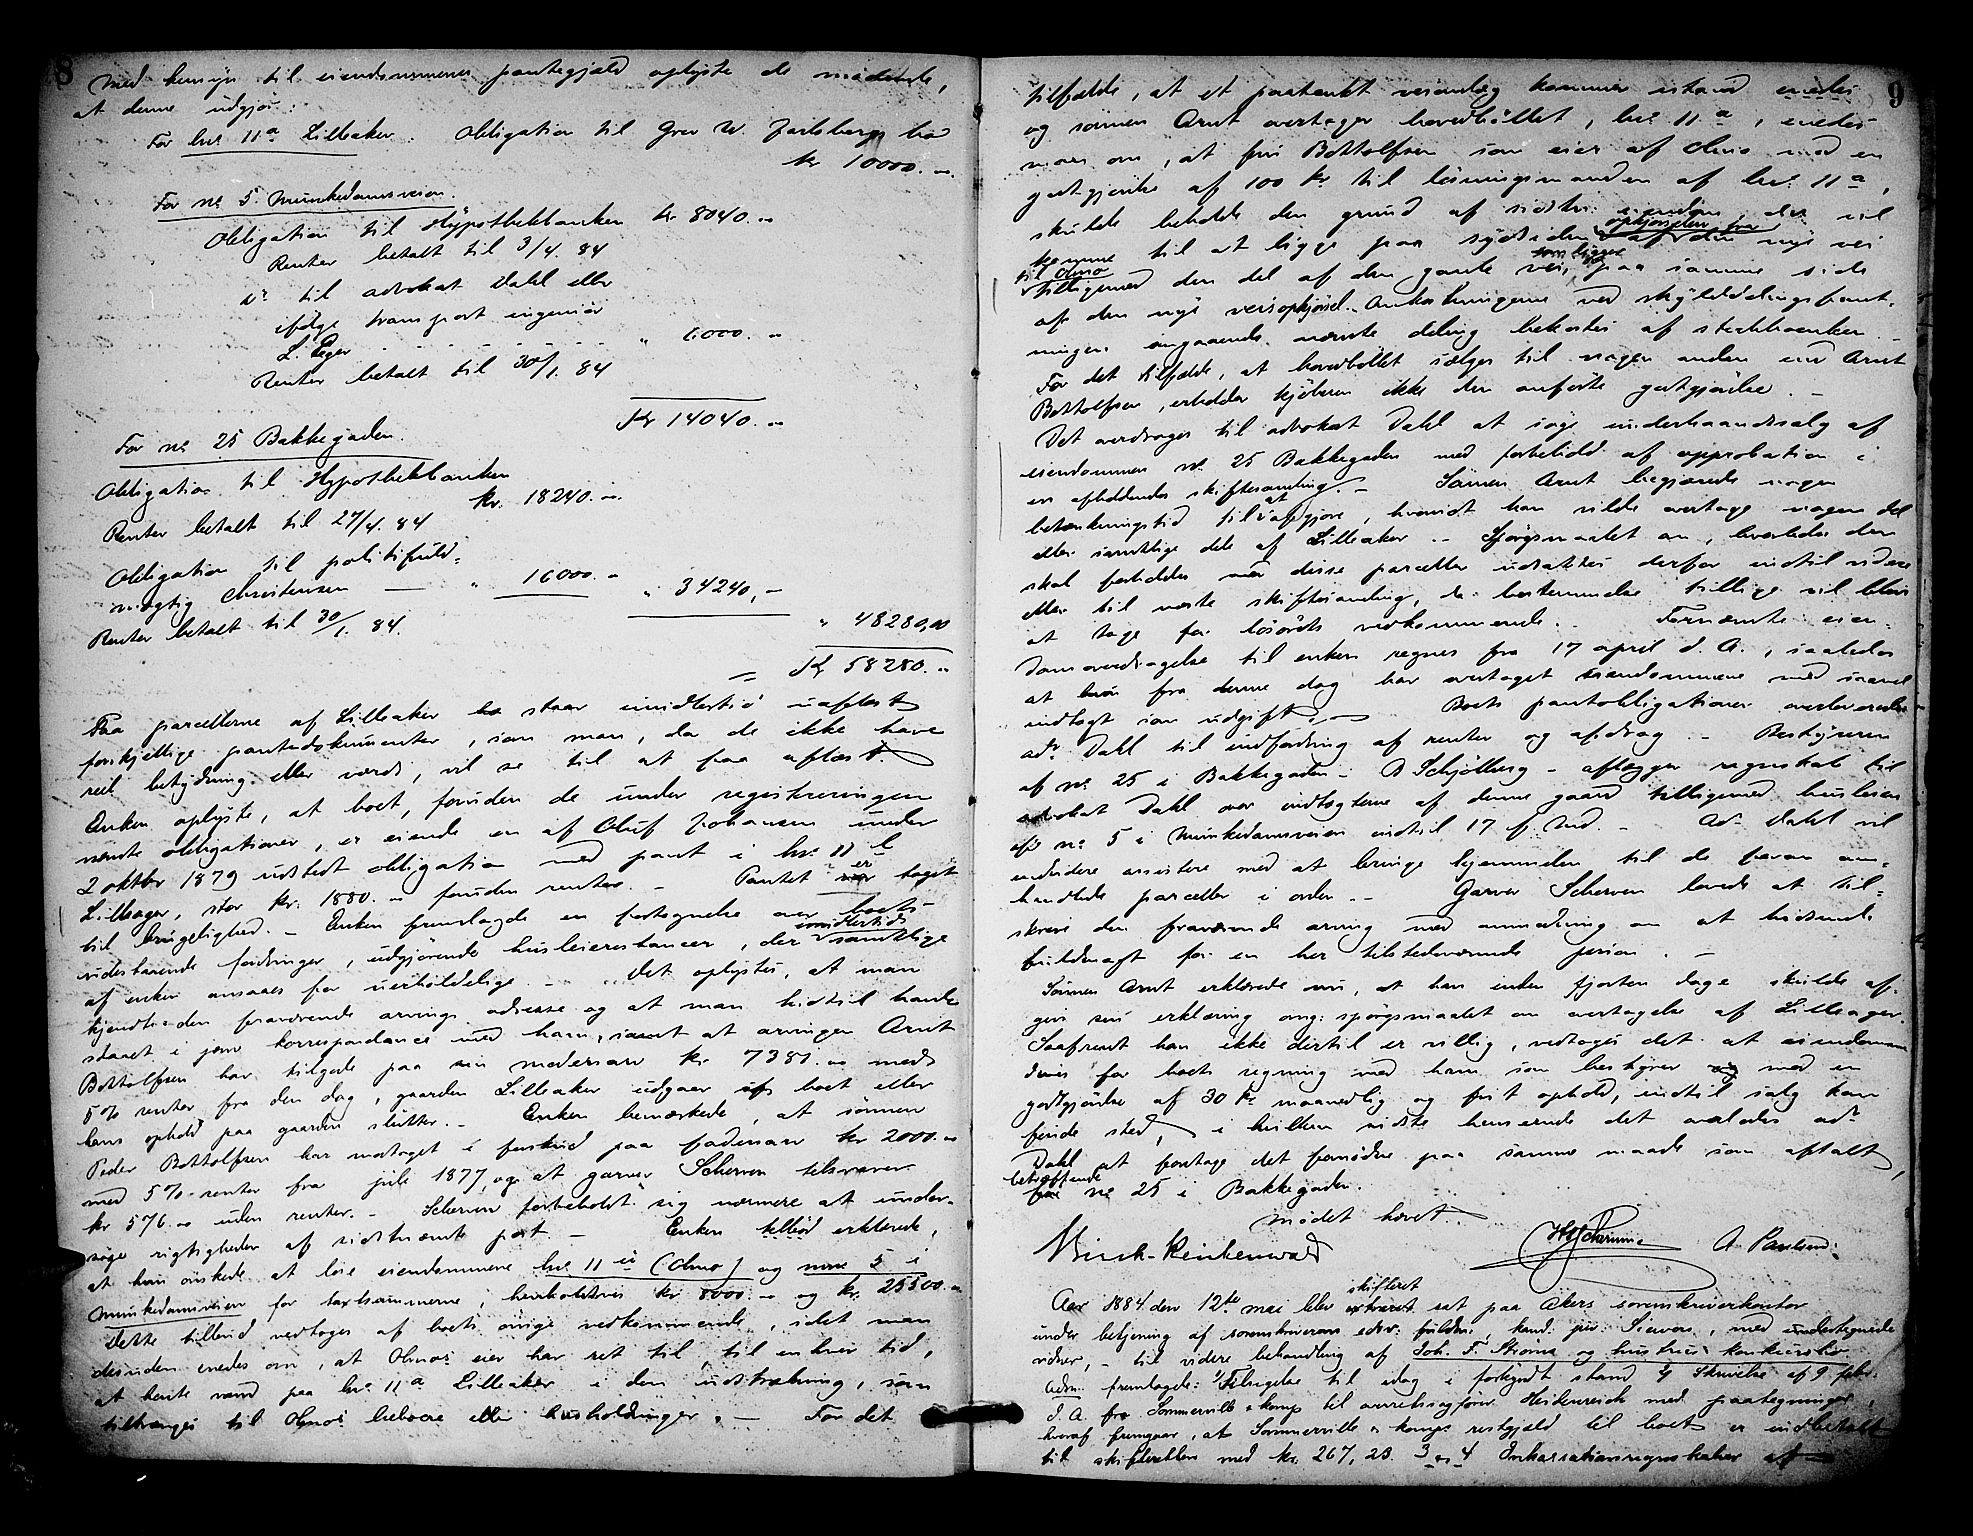 8
Med hensyn til eiendommenes pantegjæld oplyste de mødende,
at denne udgjør:
For br.no 11a Lilleaker. Obligation til Grev W. Jarlsbergs bo
kr 10000.-
For no 5 Munkedamsveien.
Obligation til Hypothekbanken kr 8040.-
Renter betalt til 3/4. 84
do til advokat Dahl eller
ifølge transport ingeniør
L. Eger - - - " 6000.-
Renter betalt til 30/1. 84
Kr 14040.-
For no 25 Bakkegaden.
Obligation til Hypothekbanken
kr. 18240.-
Renter betalt til 27/4. 84
Obligation til politifuld-
mægtig Christensen — " 16000.- " 34240,-
Renter betalt til 30/1. 84.
" 48280,00
= Kr 58280.-
Paa parcellerne af Lilleaker staar imidlertid uaflæst
forskjellige pantedokumenter, som man, da de ikke have
reel betydning eller værdi, vil se til at faa aflæst.
Enken oplyste, at boet, foruden de under registreringen
nævnte obligationer, er eiende en af Oluf Johansen under
2 oktbr 1879 udstedt obligation med pant i br.no 11
Lilleager, stor kr. 1880.- foruden renter. - Pantet er taget
til brugelighed. - Enken fremlagde en fortegnelse over boets
udestaaende fordringer, udgjørende husleierestancer, der imidlertid samtlige
af enken ansaaes for uerholdelige. - Det oplystes, at man
kjendte den fraværende arvings adresse og at man hidtil havde
staaet i jevn korrespondance med ham, samt at arvingen Arnt
Bottolfsen har tilgode paa sin mødrenarv kr 7381.- med
5% renter fra den dag, gaarden Lilleaker udgaar af boet eller
hans ophold paa gaarden slutter. - Enken bemærkede, at sønnen
Peder Bottolfsen har modtaget i forskud paa fædrenarv kr 2000.-
med 5% renter fra jule 1877, og at garver Scherven tilsvarer
kr 576.- uden renter. - Scherven forbeholdt sig nærmere at under-
søge rigtigheden af sidstnævnte post. - Enken tilbød erklærede,
at hun ønskede at løse eiendommene br.no 11 (Olmo) og no 5 i
Munkedamsveien for taxtsummerne, henholdsvis kr 8000.- og kr. 25500.-
Dette tilbud vedtoges af boets øvrige vedkommende, idet man
desuden enedes om, at Olmos eier har ret til, til enhver tid,
at hente vand paa br.no 11a Lilleaker i den udstrækning, som
tiltrænges til Olmos beboere eller husholdninger. - For det
9
tilfælde, at et paatænkt veianlæg kommer istand
og sønnen Arnt overtager hovedbøllet, br.no 11a, enedes
man om, at fru Bottolfsen som eier af Olmo mod en
godtgjørelse af 100 kr til løsningsmanden af br.no 11a,
skulde beholde den grund af sidstn. eiendom der vil
komme til at ligge paa sydsiden af opkjørselen fra den nye vei
til Olmo
tilligemed den del af den gamle vei, som ligger paa samme side
af den nye veisopkjørsel. Omkostningerne ved skylddelingsforret-
ningen angaaende nævnte deling bekostes af sterbboenken.
For det tilfælde, at hovedbøllet sælges til nogen anden end Arnt
Bottolfsen, erholder kjøberen ikke den anførte godtgjørelse. -
Det overdrages til advokat Dahl at søge underhaandssalg af
eiendommen no 25 Bakkegaden med forbehold af approbation i
en afholdendes skiftesamling. - Sønnen Arnt begjærede nogen
betænkningstid til at afgjøre, hvorvidt han vilde overtage nogen del
eller samtlige dele af Lilleaker. - Spørgsmaalet om, hvorledes der
skal forholdes med disse parceller udsættes derfor indtil videre
eller til næste skiftesamling, da bestemmelse tillige vil blive
at tage for løsørets vedkommende. - Fornævnte eien-
domsoverdragelse til enken regnes fra 17 april d. A., saaledes
at hun fra denne dag har overtaget eiendommene med saavel
indtægt som udgift. - Boets pantobligationer overleveredes
adv Dahl til indfordring af renter og afdrag. - Bestyreren
af no 25 i Bakkegaden - B Schjølberg - aflægger regnskab til
advokat Dahl over indtægterne af denne gaard tilligemed husleien
af no 5 i Munkedamsveien indtil 17 f. Md. - Adv Dahl vil
endvidere assistere med at bringe hjemmelen til de foran om-
handlede parceller i orden. - Garver Scherven lovede at til-
skrive den fraværende arving med anmodning om at indsende
fuldmagt for en her tilstedeværende person. -
Sønnen Arnt erklærede nu, at han inden fjorten dage skulde af-
give sin erklæring ang. spørgsmaalet om overtagelse af Lilleager.
Saafremt han ikke dertil er villig, vedtoges det at eiendommen
drives for boets regning med ham som bestyrer mod en
godtgjørelse af 30 kr maanedlig og frit ophold, indtil salg kan
finde sted, i hvilken sidste henseende det overlodes adv
Dahl at foretage det fornødne paa samme maade som aftalt
betræffende no 25 i Bakkegaden.
Mødet hævet.
Birch-Reichenwald HScherven A. Paulsen.
Aar 1884 den 12te mai blev skifteret sat paa Akers sorenskriverkontor
under betjening af sorenskriverens edsv. fuldm., kand. jur. Sievers, med undertegnede
vidner, - til videre behandling af Joh. F. Strøms og hustrues konkursbo
Adm. fremlagde: 1/ Tilsigelse til idag i forkyndt stand 2/ Skrivelse af 9 febr.
d. A. fra Sommerville & komp til overretssagfører Heidenreich med paategninger,
hvoraf fremgaar, at Sommerville & komps restgjæld til boet er indbetalt
til skifteretten med kr. 267,23. 3 og 4 Inkassationsregnskaber af